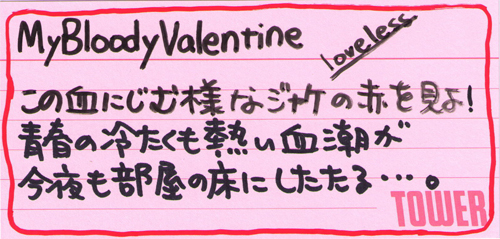 MyBloodyValentine
loveless
この血にじむ様なジャケの赤を見よ!
青春の冷たくも熱い血潮が
今夜も部屋の床にしたたる…。
TOWER